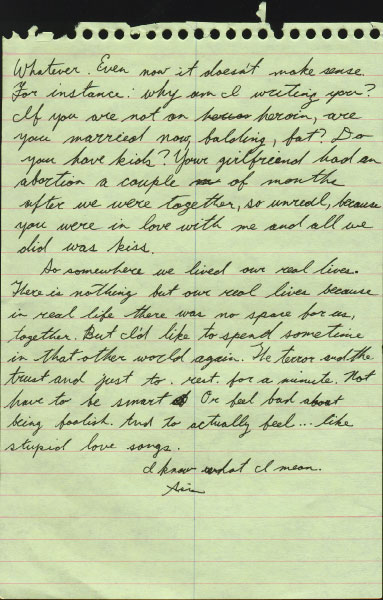 Whatever. Even now it doesn't make sense.
For instance: why am I writing you?
If you are not on heroin, are
you married now, balding, fat? Do
you have kids? Your girlfriend had an
abortion a couple of months
after we were together, so unreal, because
you were in love with me and all we
did was kiss.
So somewhere we lived our real lives.
There is nothing but our real lives because
in real life there was no space for us,
together. But I'd like to spend sometime
in that other world again. The terror and the
trust and just to. rest. for a minute. Not
have to be smart Or feel bad about
being foolish. And to actually feel... like
stupid love songs.
I know what I mean.